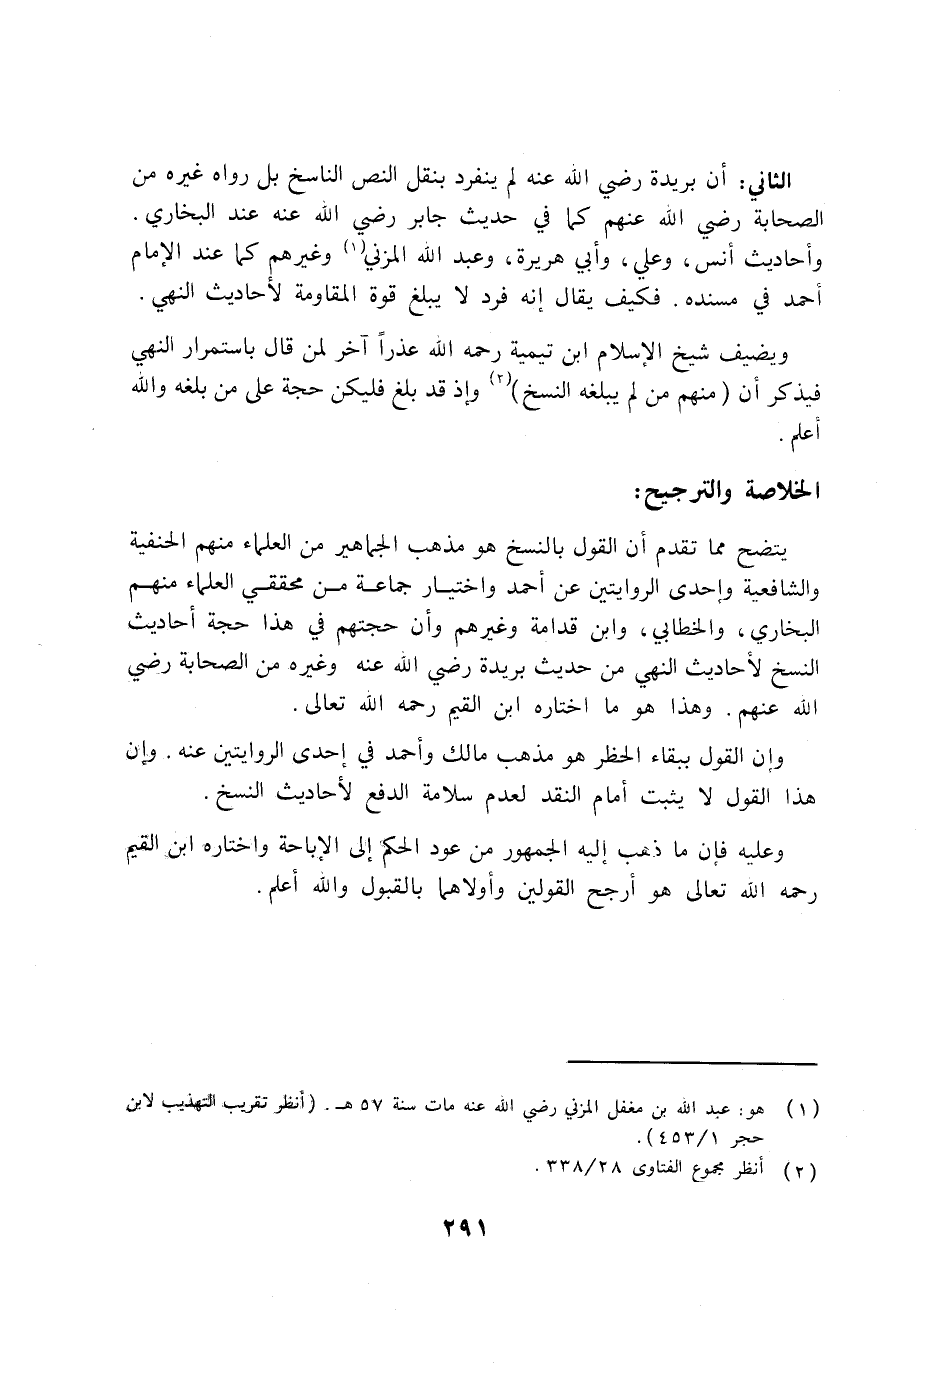 الثاني: أن بريدة رضي الله عنه لم ينفرد بنقل النص الناسخ بل رواه غيره من
الصحابة رضي الله عنهم كما في حديث جابر رضي الله عنه عند البخاري.
وأحاديث أنس، وعلي، وأبي هريرة، وعبد الله المزني(١) وغيرهم كما عند الإمام
أحمد في مسنده. فكيف يقال إنه فرد لا يبلغ قوة المقاومة لأحاديث النهي.
ويضيف شيخ الإسلام ابن تيمية رحمه الله عذراً آخر لمن قال باستمرار النهي
فيذكر أن (منهم من لم يبلغه النسخ)(٢) وإذ قد بلغ فليكن حجة على من بلغه والله
أعلم.
الخلاصة والترجيح:
يتضح مما تقدم أن القول بالنسخ هو مذهب الجماهير من العلماء منهم الحنفية
والشافعية وإحدى الروايتين عن أحمد واختيار جماعة من محققي العلماء منهم
البخاري، والخطابي، وابن قدامة وغيرهم وأن حجتهم في هذا حجة أحاديث
النسخ لأحاديث النهي من حديث بريدة رضي الله عنه وغيره من الصحابة رضي
الله عنهم. وهذا هو ما اختاره ابن القيم رحمه الله تعالى.
وإن القول ببقاء الحظر هو مذهب مالك وأحمد في إحدى الروايتين عنه. وإن
هذا القول لا يثبت أمام النقد لعدم سلامة الدفع لأحاديث النسخ.
وعليه فإن ما ذهب إليه الجمهور من عود الحكم إلى الإباحة واختاره ابن القيم
رحمه الله تعالى هو أرجح القولين وأولاهما بالقبول والله أعلم.
(١) هو: عبد الله بن مغفل المزني رضي الله عنه مات سنة ٥٧ هـ. (أنظر تقريب التهذيب لابن
حجر ٤٥٣/١).
(٢) أنظر مجموع الفتاوى ٣٣٨/٢٨.
٢٩١